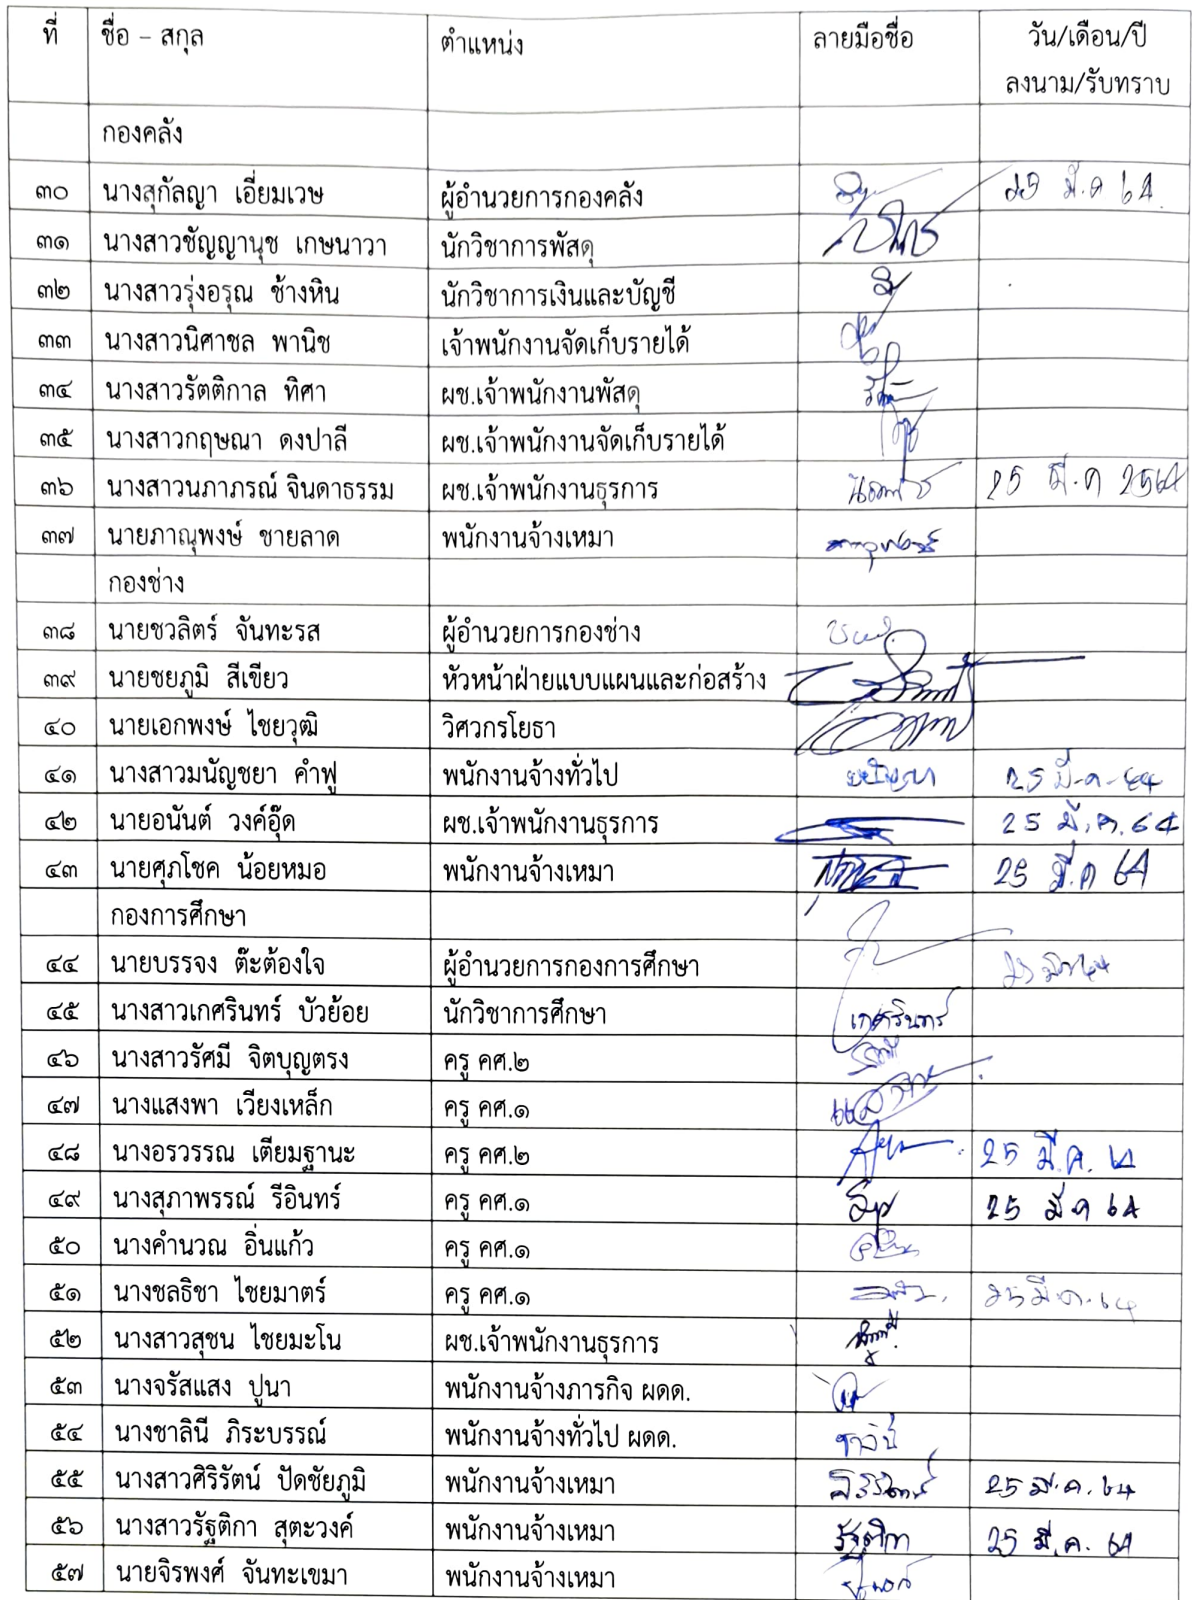 ที่ ชื่อ – สกุล ตำแหน่ง ลายมือชื่อ วัน/เดือน/ปี
ลงนาม/รับทราบ
กองคลัง
๓๐ นางสุกัลญา เอี่ยมเวช ผู้อำนวยการกองคลัง มี.ค 64
๓๑ นางสาวชัญญานุช เกษนาวา นักวิชาการพัสดุ
๓๒ นางสาวรุ่งอรุณ ช้างหิน นักวิชาการเงินและบัญชี
๓๓ นางสาวนิศาชล พานิช เจ้าพนักงานจัดเก็บรายได้
๓๔ นางสาวรัตติกาล ทิศา ผช.เจ้าพนักงานพัสดุ
๓๕ นางสาวกฤษณา ดงปาลี ผช.เจ้าพนักงานจัดเก็บรายได้
๓๖ นางสาวนภาภรณ์ จินดาธรรม ผช.เจ้าพนักงานธุรการ 25 มี.ค 2564
๓๗ นายภาณุพงษ์ ชายลาด พนักงานจ้างเหมา
กองช่าง
๓๘ นายชวลิตร์ จันทะรส ผู้อำนวยการกองช่าง
๓๙ นายชยภูมิ สีเขียว หัวหน้าฝ่ายแบบแผนและก่อสร้าง
๔๐ นายเอกพงษ์ ไชยวุฒิ วิศวกรโยธา
๔๑ นางสาวมนัญชยา คำฟู พนักงานจ้างทั่วไป 25 มี-ค-64
๔๒ นายอนันต์ วงค์อุ๊ด ผช.เจ้าพนักงานธุรการ 25 มี.ค.64
๔๓ นายศุภโชค น้อยหมอ พนักงานจ้างเหมา 25 มี.ค 64
กองการศึกษา
๔๔ นายบรรจง ต๊ะต้องใจ ผู้อำนวยการกองการศึกษา
๔๕ นางสาวเกศรินทร์ บัวย้อย นักวิชาการศึกษา เกศรินทร์
๔๖ นางสาวรัศมี จิตบุญตรง ครู คศ.๒
๔๗ นางแสงพา เวียงเหล็ก ครู คศ.๑
๔๘ นางอรวรรณ เตียมฐานะ ครู คศ.๒ 25 มี.ค.
๔๙ นางสุภาพรรณ์ รีอินทร์ ครู คศ.๑ 25 มี ค 64
๕๐ นางคำนวณ อิ่นแก้ว ครู คศ.๑
๕๑ นางชลธิชา ไชยมาตร์ ครู คศ.๑ 25 มี.ค.64
๕๒ นางสาวสุชน ไชยมะโน ผช.เจ้าพนักงานธุรการ
๕๓ นางจรัสแสง ปูนา พนักงานจ้างภารกิจ ผดด.
๕๔ นางชาลินี ภิระบรรณ์ พนักงานจ้างทั่วไป ผดด. ชาลินี
๕๕ นางสาวศิริรัตน์ ปัดชัยภูมิ พนักงานจ้างเหมา 25 มี.ค.64
๕๖ นางสาวรัฐติกา สุตะวงค์ พนักงานจ้างเหมา รัฐติกา 25 มี.ค. 64
๕๗ นายจิรพงศ์ จันทะเขมา พนักงานจ้างเหมา